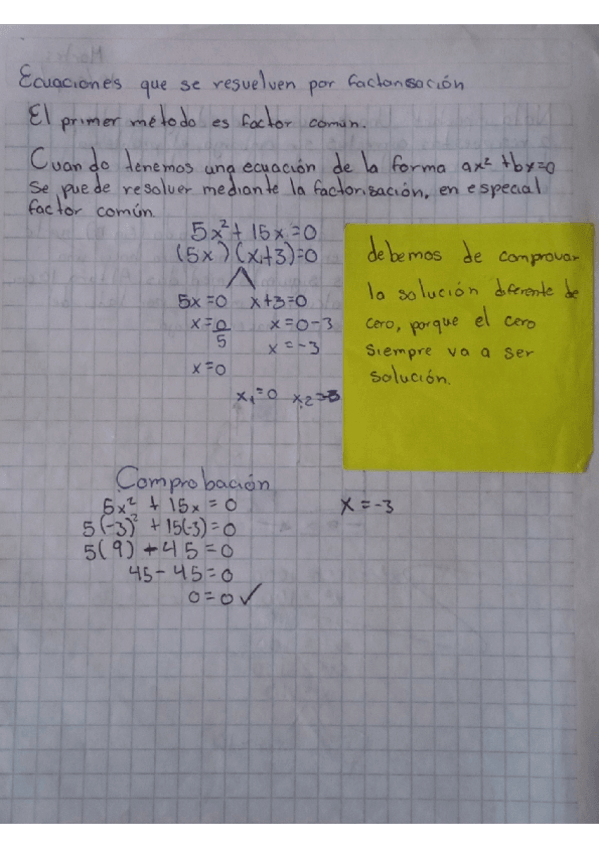 Ecuaciones que se resuelven por factorisación
El primer método es factor común.
Cuando tenemos una ecuación de la forma ax² + bx=0
se puede resolver mediante la factorisación, en especial
factor común.
5x² + 15x = 0
(5x)(x+3)=0
5x=0 x+3=0
x=0/5 x=0-3
x=-3
x=0
x₁=0 x₂=-3
debemos de comprovar
la solución diferente de
cero, porque el cero
siempre va a ser
solución.
Comprobación
5x² + 15x = 0 x=-3
5(-3)² + 15(-3)=0
5(9) - 45=0
45 - 45=0
0=0 ✓